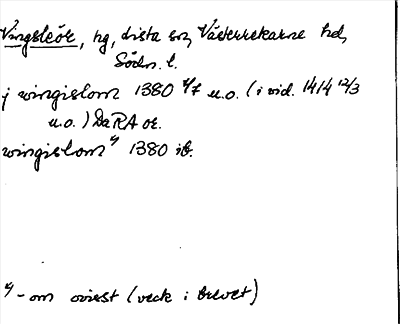 Vingsleör, hg, Lista sn, Västerrekarne hd,
Södn. l.
j wingislom 1380 4/7 u.o. (i vid. 1414 12/3
u.o.) DaRA or.
wingislom 1380 ib.
-om ovisst (veck i brevet)